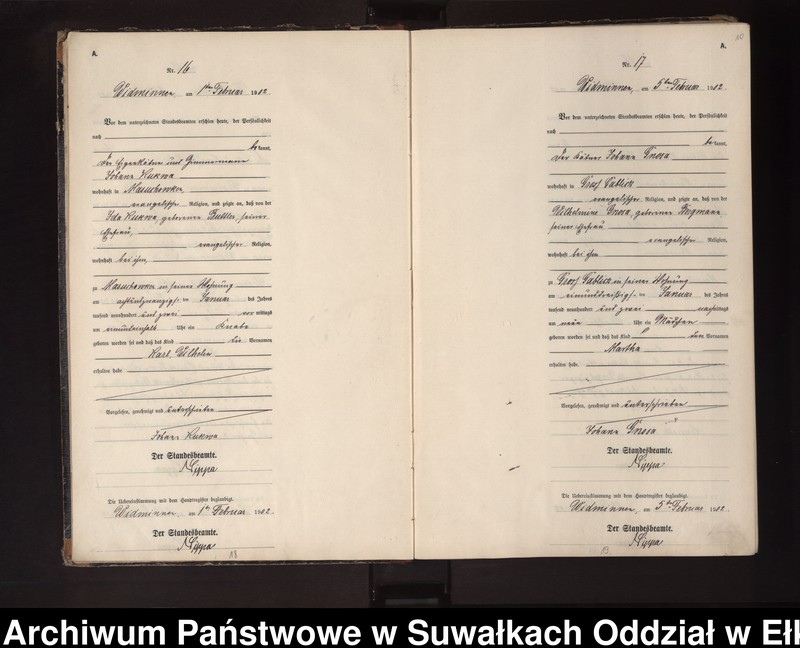 A.
Nr. 16
Widminnen, am 1ten Februar 1902
Vor dem unterzeichneten Standesbeamten erschien heute, der Persönlichkeit
nach
bekannt,
der Eigenkätner und Zimmermann
Johann Kukwa
wohnhaft in Masuchowken
evangelischer Religion, und zeigte an, daß von der
Ida Kukwa, geborenen seiner
Ehefrau,
evangelischer Religion,
wohnhaft bei ihm,
zu Masuchowken in seiner Wohnung
am achtundzwanzigsten Januar des Jahres
tausend neunhundert und zwei vormittags
um Uhr ein Knabe
geboren worden sei und daß das Kind die Vornamen
Karl Wilhelm
erhalten habe
Vorgelesen, genehmigt und unterschrieben
Johann Kukwa
Der Standesbeamte.
Lippa
Die Uebereinstimmung mit dem Hauptregister beglaubigt.
Widminnen, am 1ten Februar 1902
Der Standesbeamte.
Lippa
18
10
A.
Nr. 17
Widminnen, am 5ten Februar 1902
Vor dem unterzeichneten Standesbeamten erschien heute, der Persönlichkeit
nach
bekannt,
der Kätner Johann Gnosa
wohnhaft in Gross Gablick
evangelischer Religion, und zeigte an, daß von der
Wilhelmine Gnosa, geborenen
seiner Ehefrau
evangelischer Religion,
wohnhaft bei ihm
zu Gross Gablick in seiner Wohnung
am einunddreißigsten Januar des Jahres
tausend neunhundert und zwei nachmittags
um neun Uhr ein Mädchen
geboren worden sei und daß das Kind den Vornamen
Martha
erhalten habe
Vorgelesen, genehmigt und unterschrieben
Johann Gnosa
Der Standesbeamte.
Lippa
Die Uebereinstimmung mit dem Hauptregister beglaubigt.
Widminnen, am 5ten Februar 1902.
Der Standesbeamte.
Lippa
Archiwum Państwowe w Suwałkach Oddział w Ełk